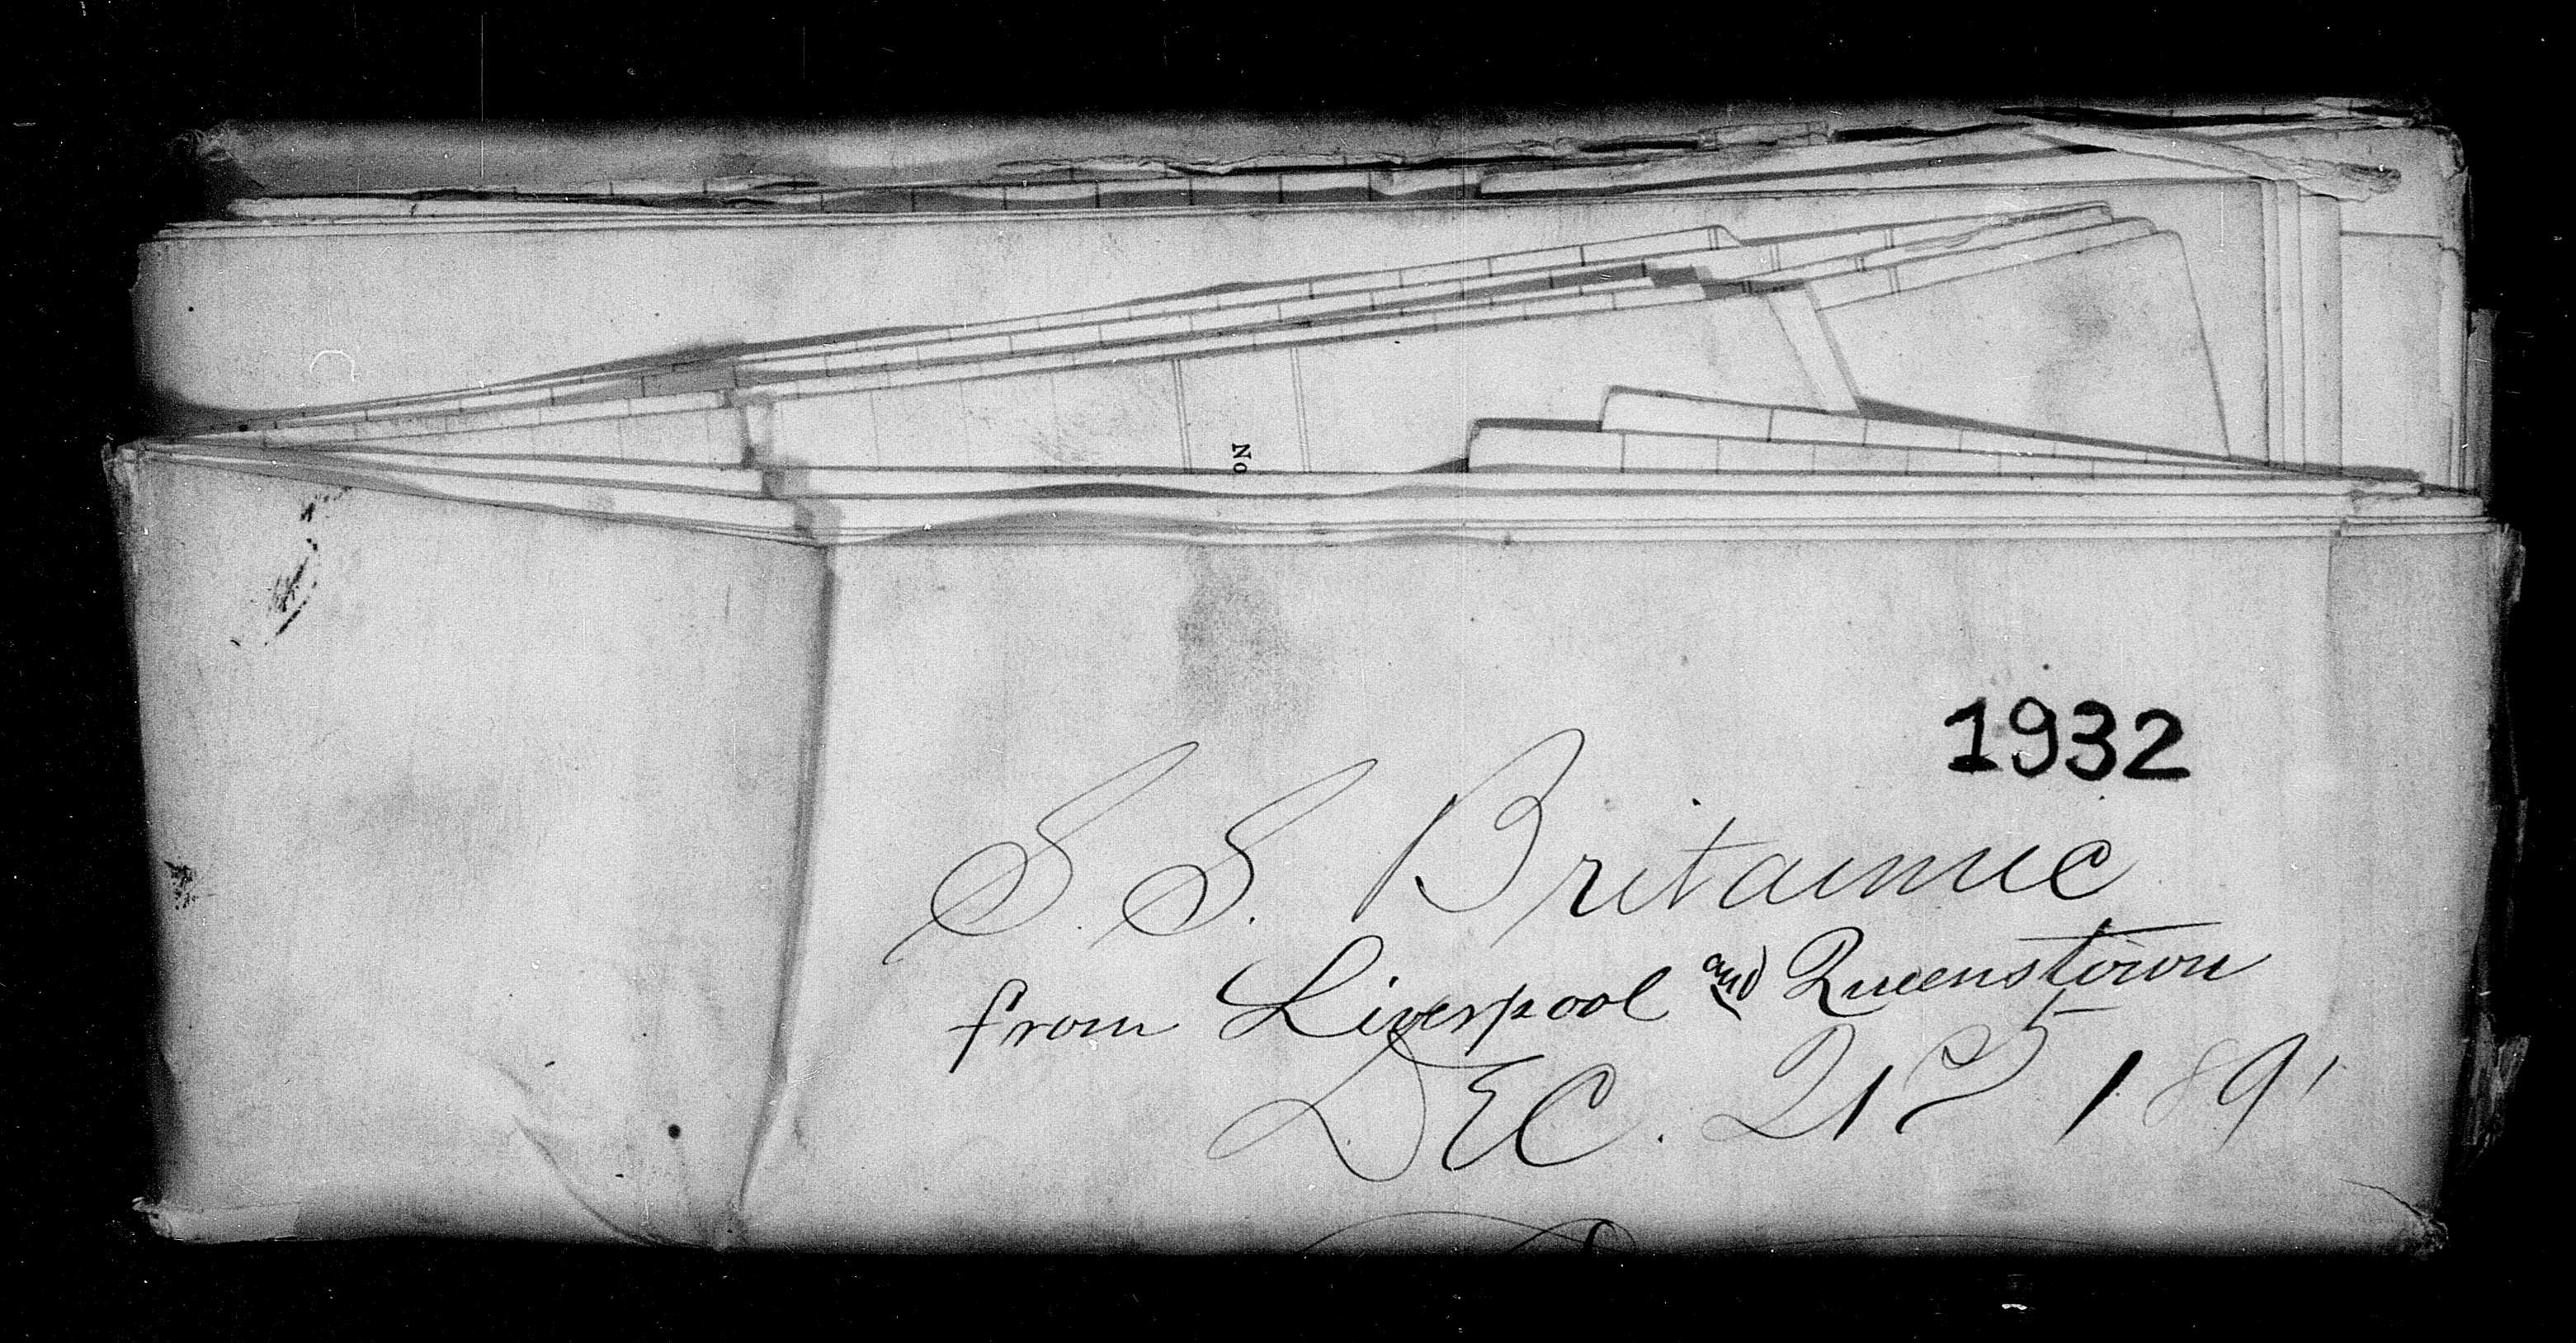 No
1932
S. S. Britannic
from Liverpool and Queenstown
DEC. 21st 1891